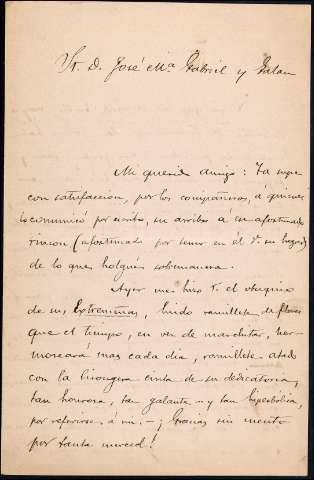 Sr. D. José Mª Gabriel y Galan
Mi querido amigo: Ya supe
con satisfacción, por los compañeros, á quienes
lo comunicó por escrito, su arribo á ese afortunado
rincon (afortunado por tener en él V. su hogar)
de lo que holgué sobremanera.
Ayer me hizo V. el obsequio
de sus Extremeñas, lindo ramillete de flores
que el tiempo, en vez de marchitar, her-
moseará mas cada dia, ramillete atado
con la lisongera cinta de su dedicatoria,
tan honrosa, tan galante – y tan hiperbólica,
por referirse á mi, – ¡Gracias sin cuento
por tanta merced!